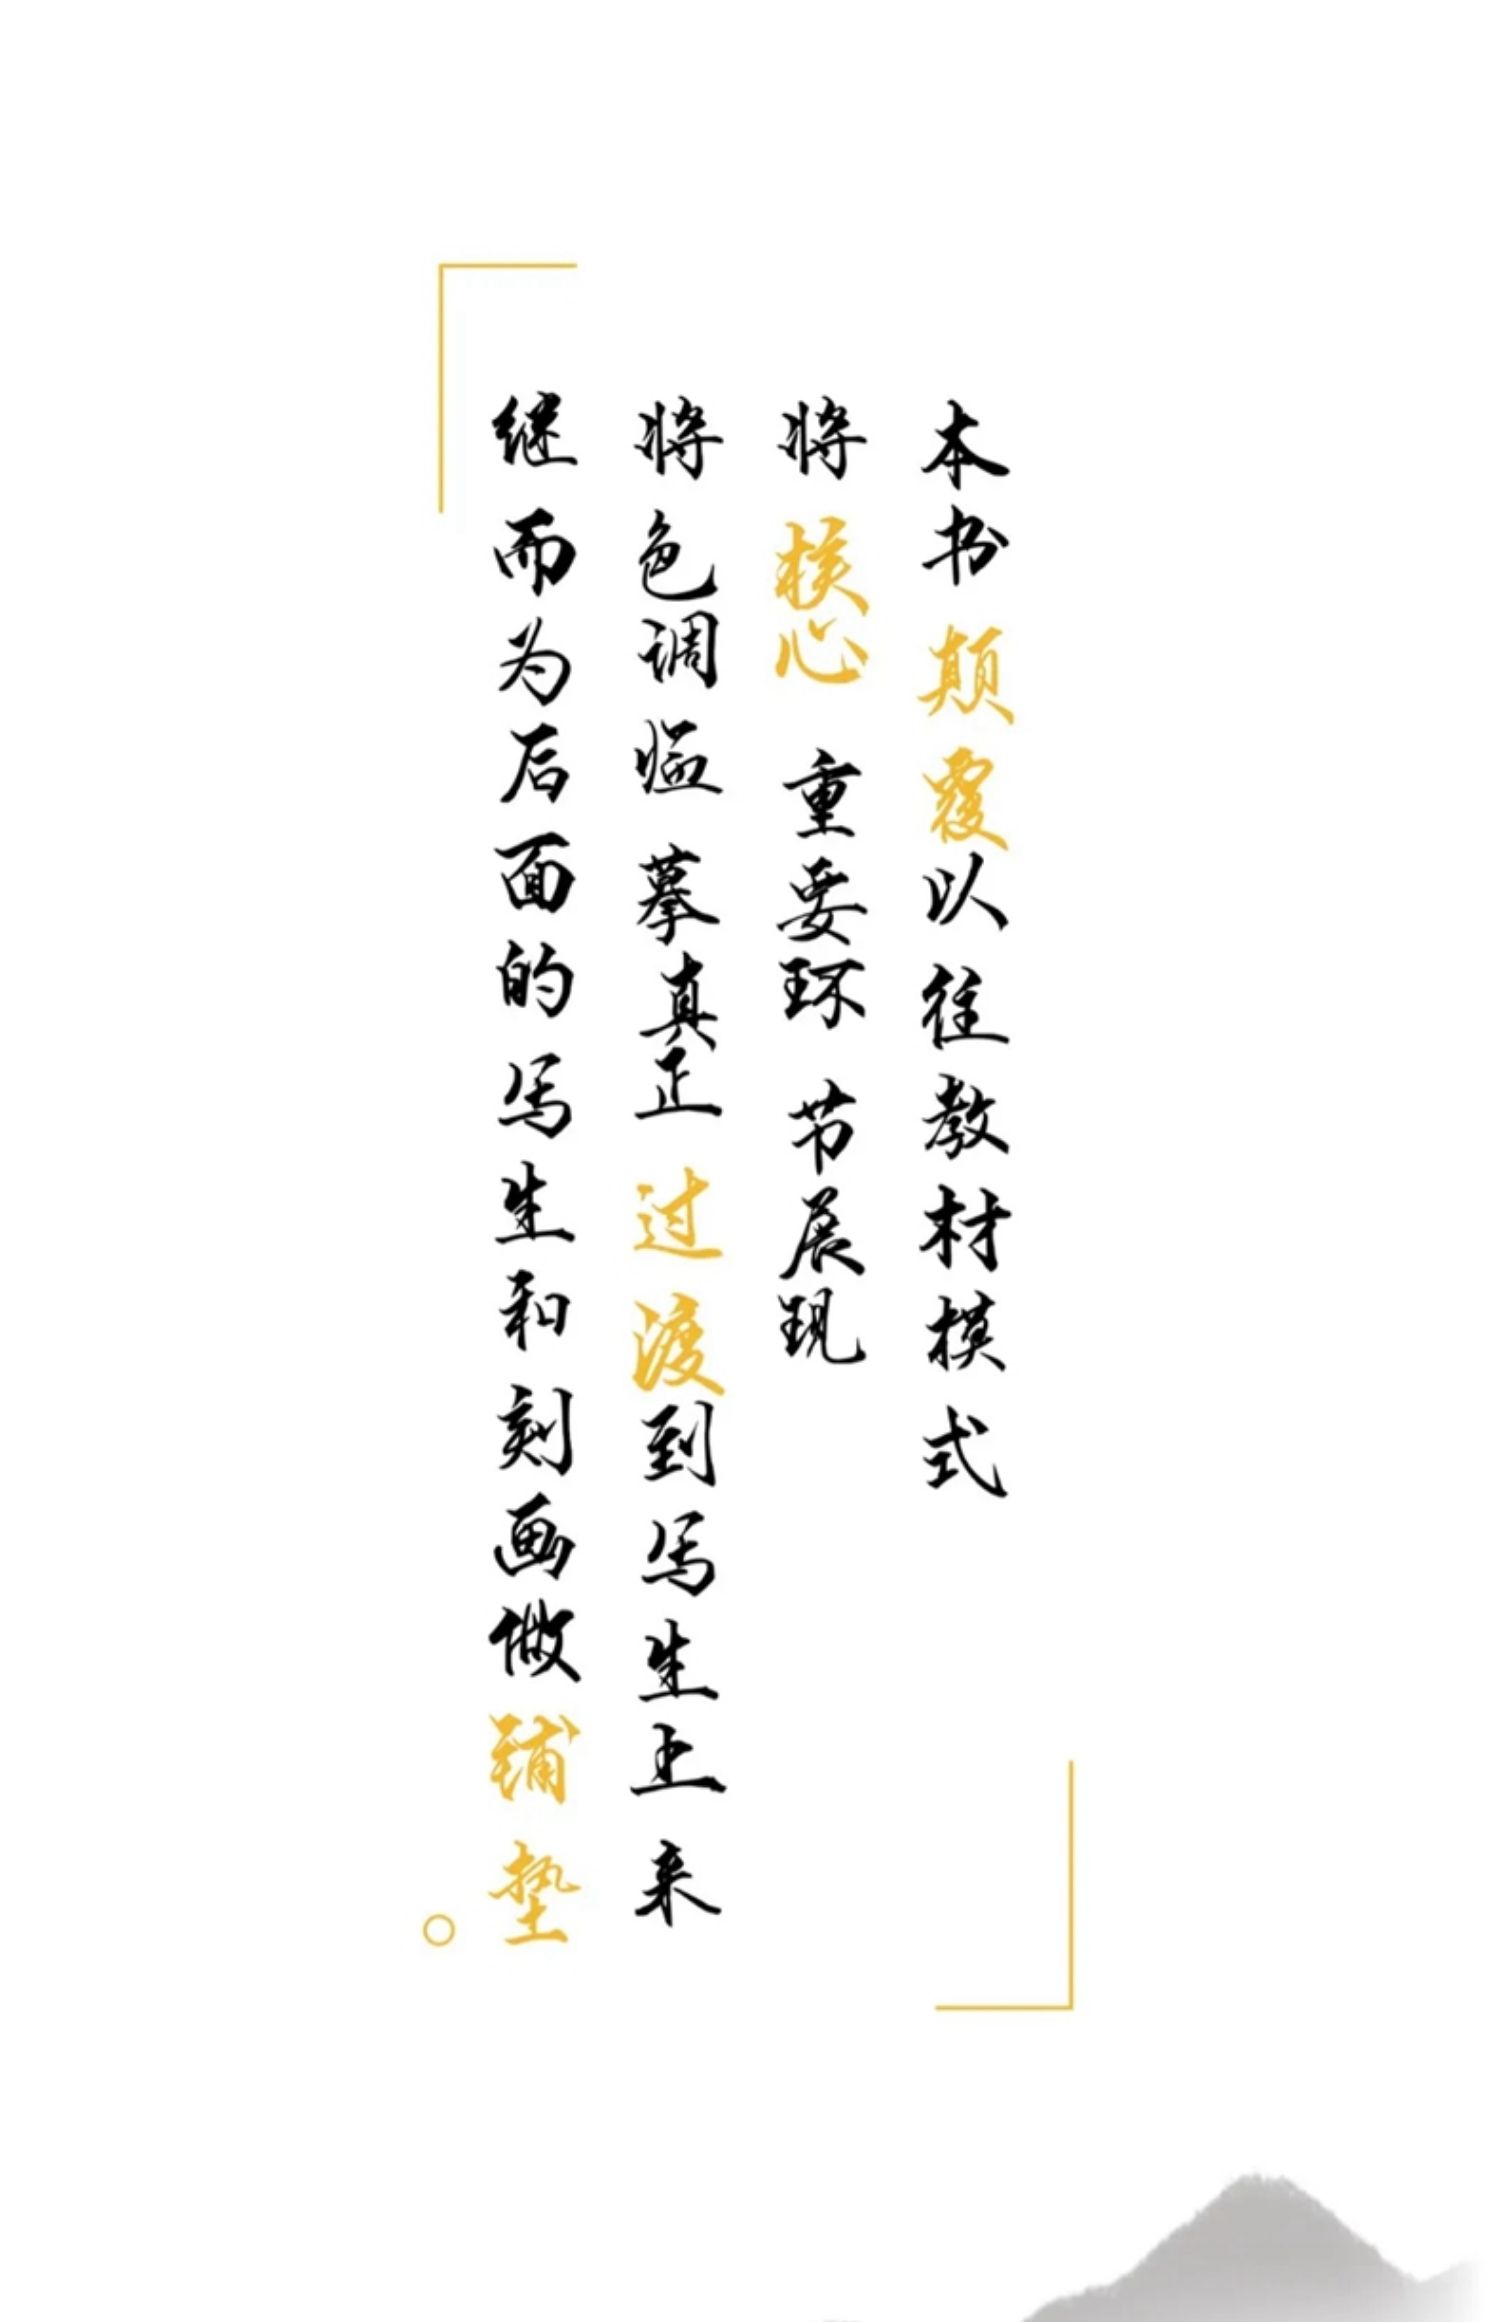 本书颠覆以往教材模式
将核心重要环节展现
将色调临摹真正过渡到写生上来
继而为后面的写生和刻画做铺垫。